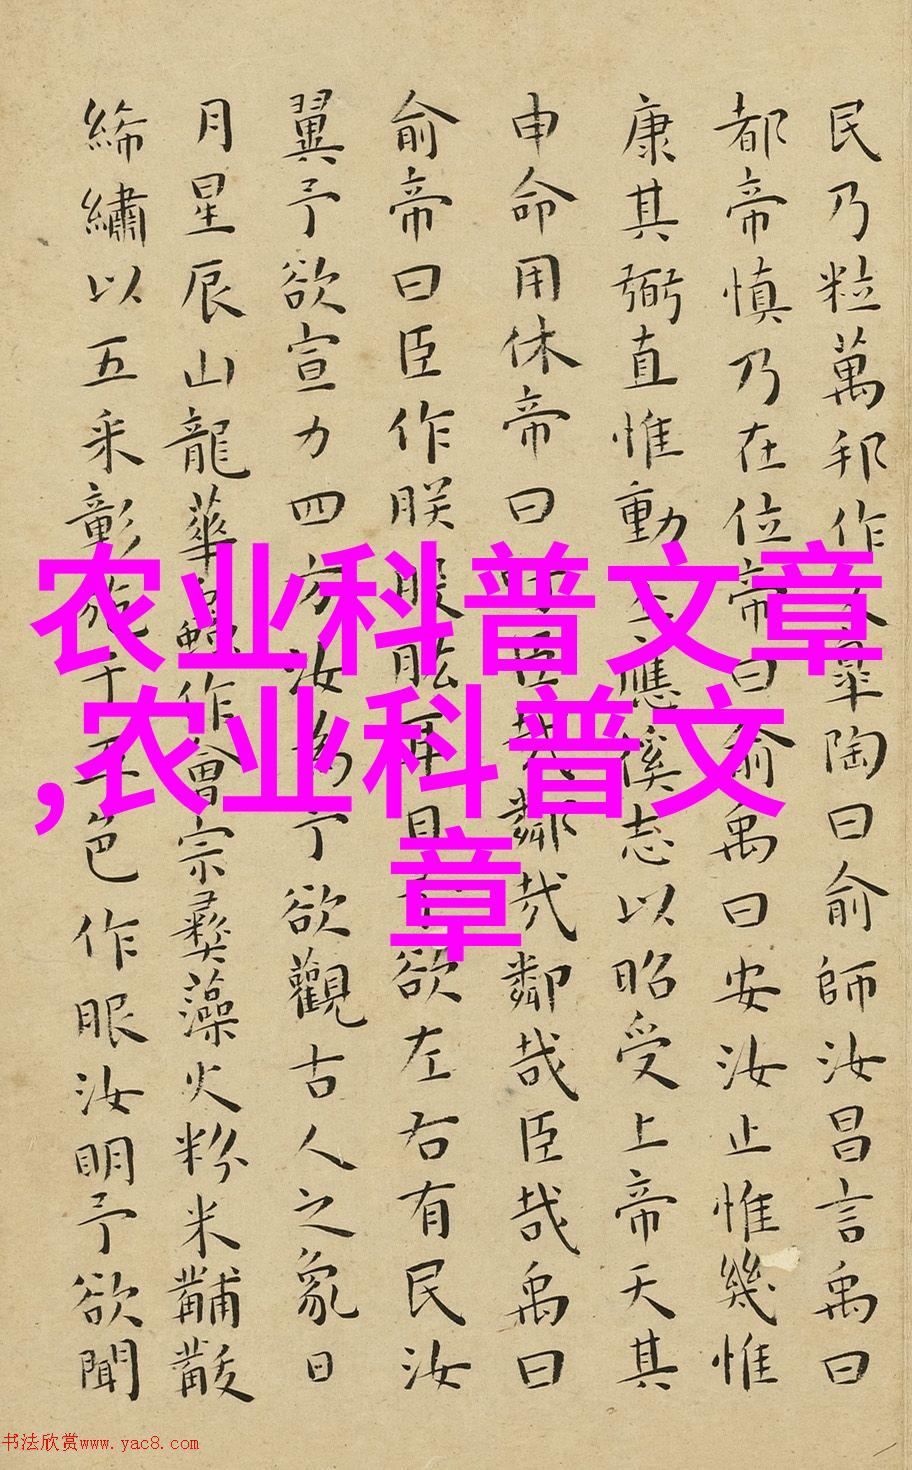 民乃粒萬邦作乂皋陶曰俞師汝昌言禹曰
都帝慎乃在位帝曰俞禹曰安汝止惟幾惟
康其弼直惟動丕應徯志以昭受上帝天其
申命用休帝曰吁臣哉鄰哉鄰哉臣哉禹曰
俞帝曰臣作朕股肱耳目予欲左右有民汝
翼予欲宣力四方汝為予欲觀古人之象日
月星辰山龍華蟲作會宗彝藻火粉米黼黻
絺繡以五采彰施于五色作服汝明予欲聞
农业科普文章
,农业科普文
章
书法欣赏www.yac8.com